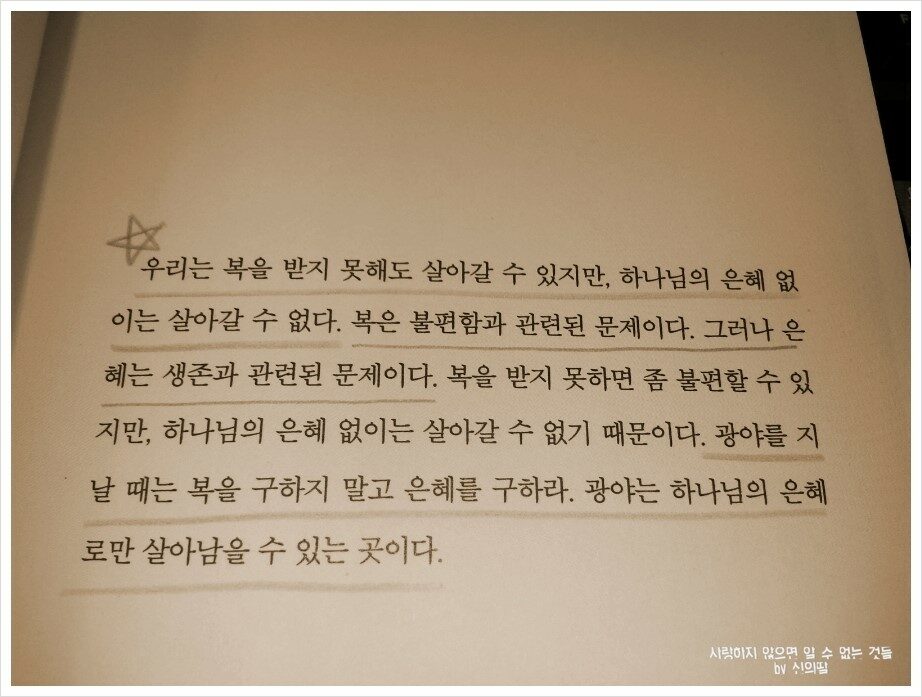 우리는 복을 받지 못해도 살아갈 수 있지만, 하나님의 은혜 없
이는 살아갈 수 없다. 복은 불편함과 관련된 문제이다. 그러나 은
혜는 생존과 관련된 문제이다. 복을 받지 못하면 좀 불편할 수 있
지만, 하나님의 은혜 없이는 살아갈 수 없기 때문이다. 광야를 지
날 때는 복을 구하지 말고 은혜를 구하라. 광야는 하나님의 은혜
로만 살아남을 수 있는 곳이다.
사랑하지 않으면 알 수 없는 것들
by 신의딸